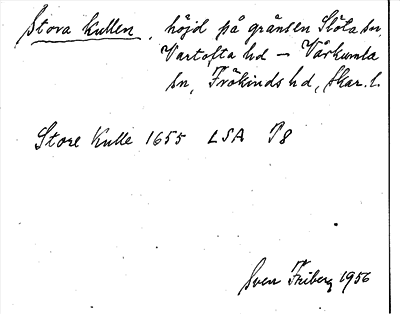 Stora kullen, höjd på gränsen Slöta sn,
Vartofta hd – Vårkumla
sn, Frökinds hd, Skar. l.
Store Kulle 1655 LSA P8
Sven Friberg 1956